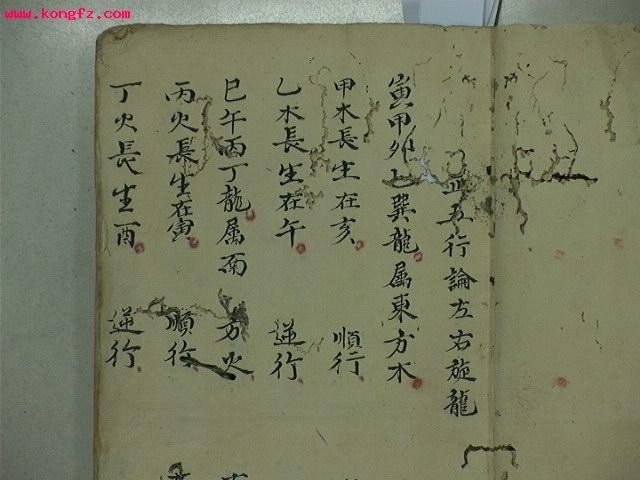 www.kongfz.com
正五行論左右旋龍
寅甲夘乙巽龍属東方木
甲木長生在亥 順行
乙木長生在午 逆行
巳午丙丁龍属南方火
丙火長生在寅 順行
丁火長生酉 逆行